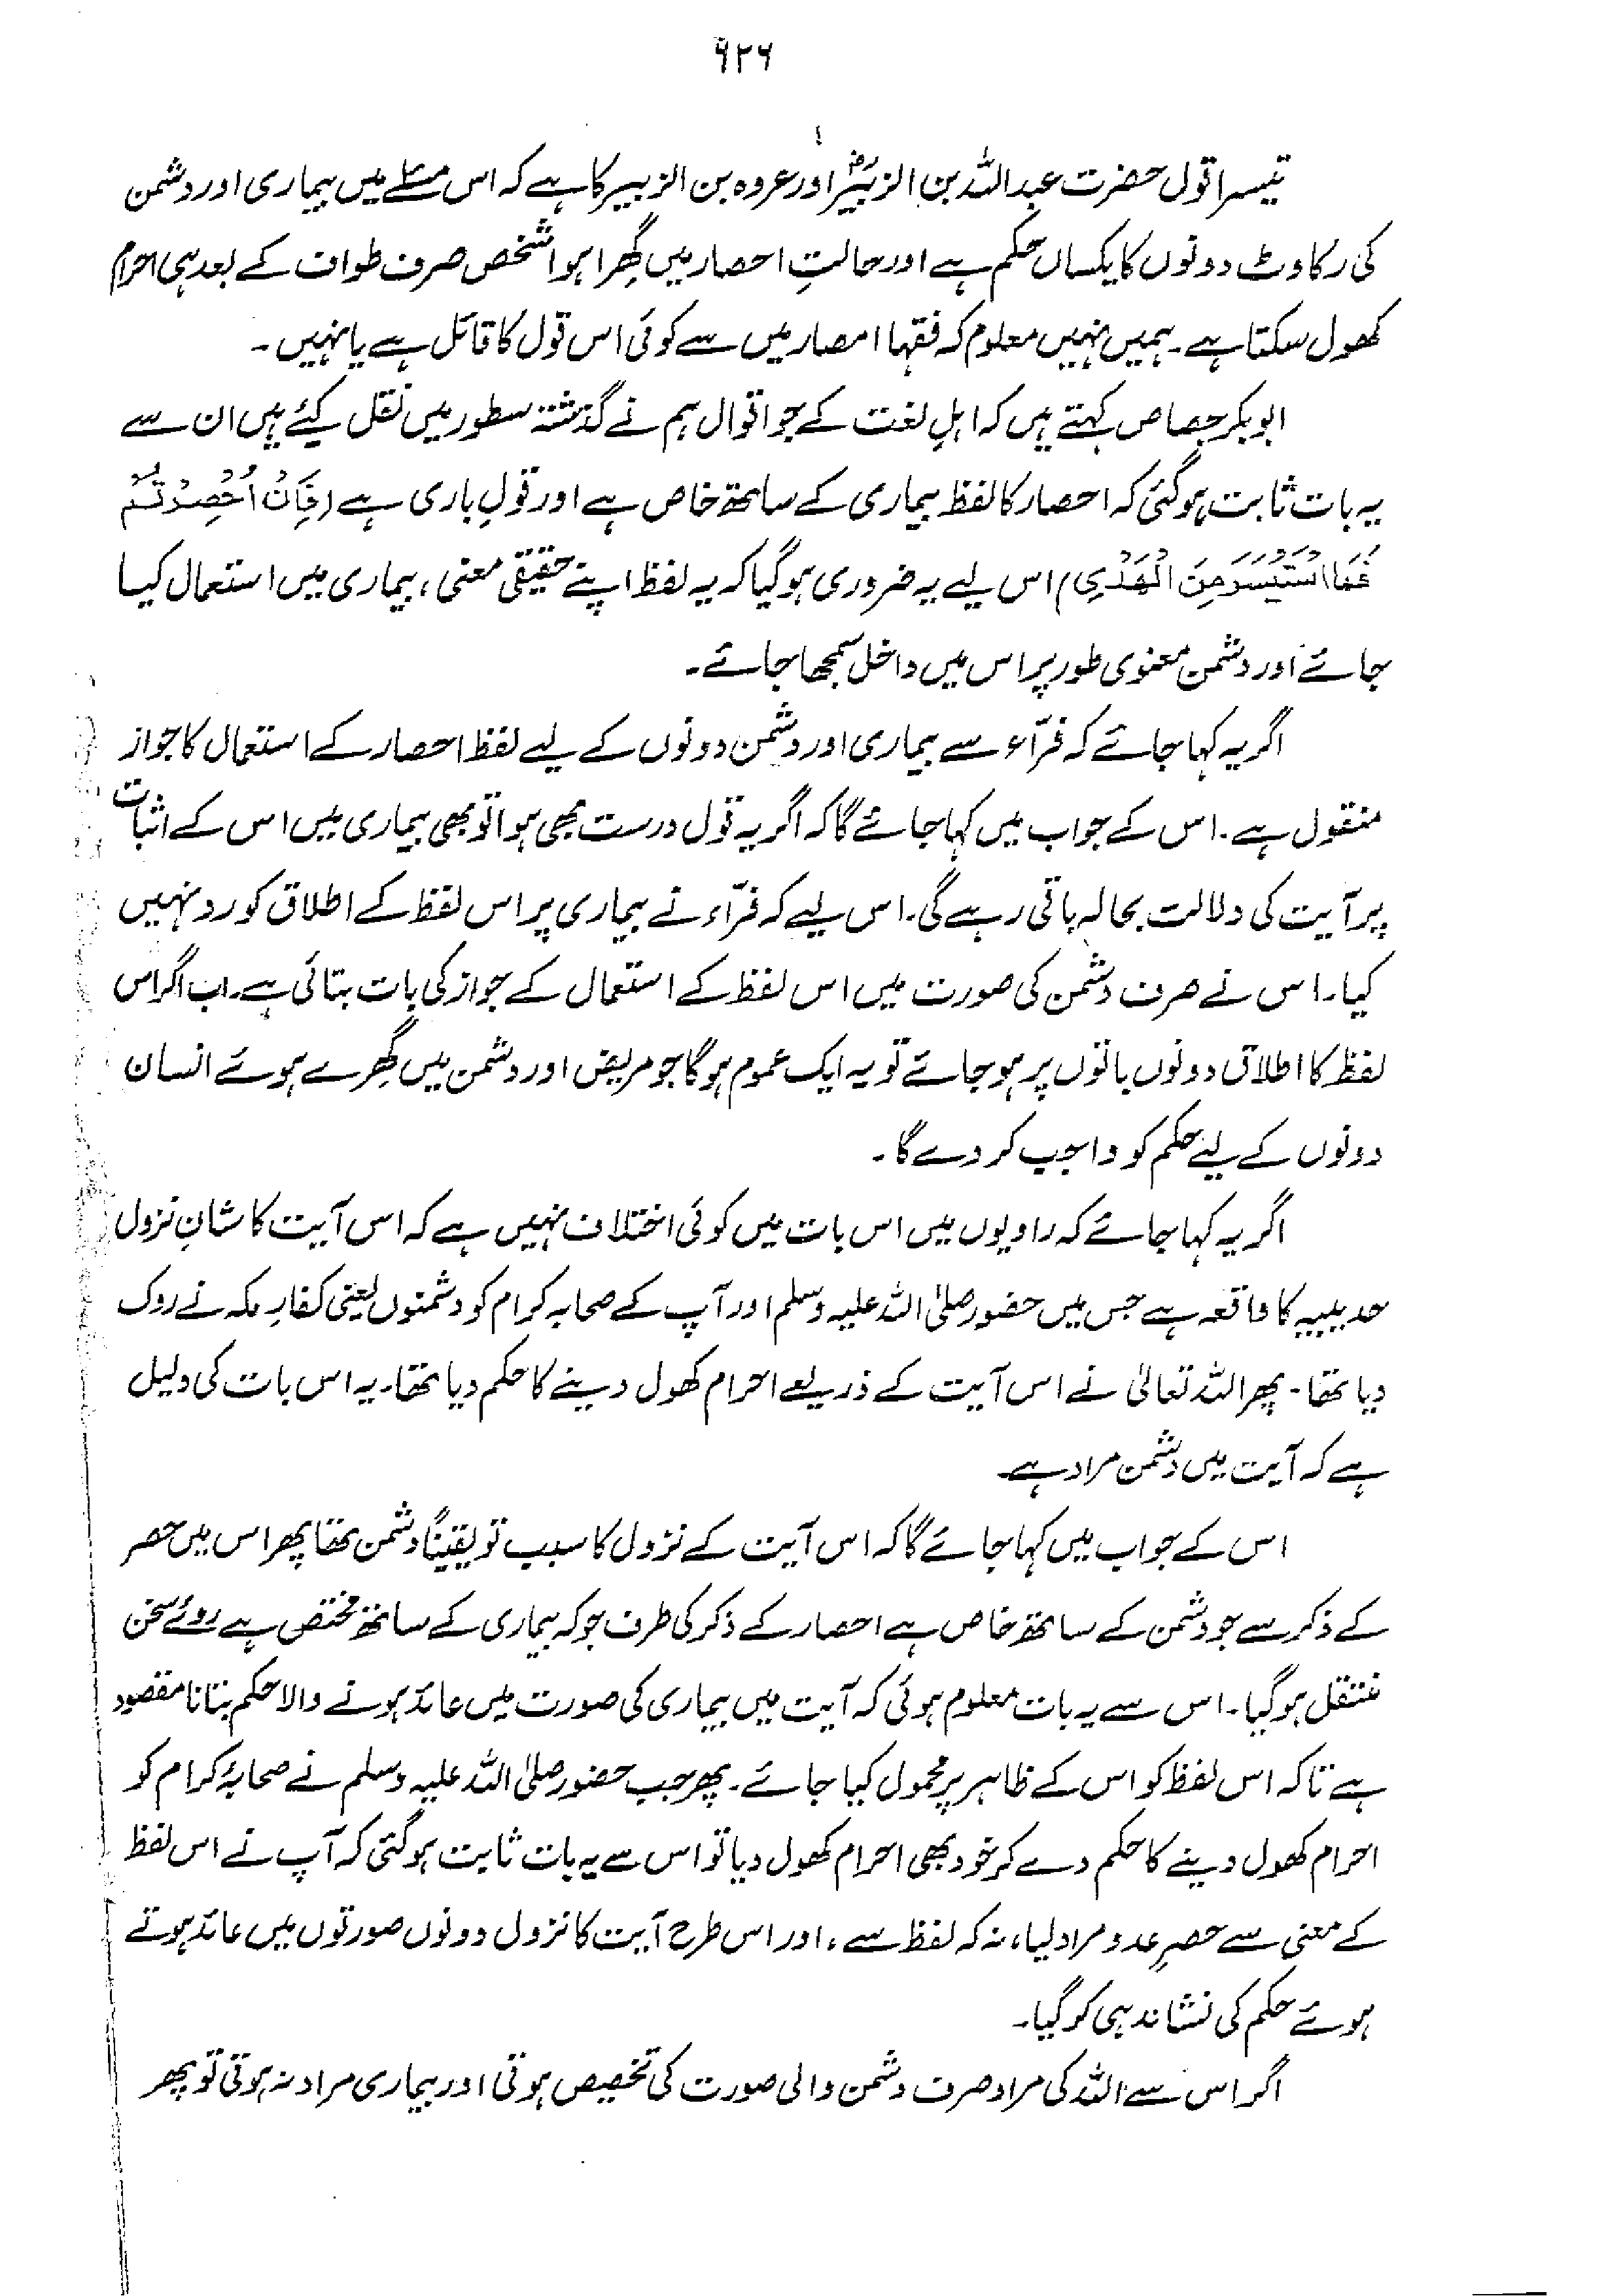 ۹۲۶
تیسرا قول حضرت عبداللہ بن الزبیرؓ اور عروہ بن الزبیر کا ہے کہ اس مسئلے میں بیماری اور دشمن
کی رکاوٹ دونوں کا یکساں حکم ہے اور حالتِ احصار میں گھرا ہوا شخص صرف طواف کے بعد ہی احرام
کھول سکتا ہے۔ ہمیں نہیں معلوم کہ فقہا امصار میں سے کوئی اس قول کا قائل ہے یا نہیں۔
ابوبکر جصاص کہتے ہیں کہ اہلِ لغت کے جو اقوال ہم نے گذشتہ سطور میں نقل کیئے ہیں ان سے
یہ بات ثابت ہوگئی کہ احصار کا لفظ بیماری کے ساتھ خاص ہے اور قولِ باری ہے (فَاِنْ اُحْصِرْتُمْ
فَمَا اسْتَيْسَرَ مِنَ الْهَدْيِ) اس لیے یہ ضروری ہوگیا کہ یہ لفظ اپنے حقیقی معنی، بیماری میں استعمال کیا
جائے اور دشمن معنوی طور پر اس میں داخل سمجھا جائے۔
اگر یہ کہا جائے کہ فرّاء سے بیماری اور دشمن دونوں کے لیے لفظ احصار کے استعمال کا جواز
منقول ہے۔ اس کے جواب میں کہا جائے گا کہ اگر یہ قول درست بھی ہوا تو بھی بیماری میں اس کے اثبات
پر آیت کی دلالت بحالہ باقی رہے گی۔ اس لیے کہ فرّاء نے بیماری پر اس لفظ کے اطلاق کو رد نہیں
کیا۔ اس نے صرف دشمن کی صورت میں اس لفظ کے استعمال کے جواز کی بات بتائی ہے۔ اب اگر اس
لفظ کا اطلاق دونوں باتوں پر ہو جائے تو یہ ایک عموم ہوگا جو مریض اور دشمن میں گھرے ہوئے انسان
دونوں کے لیے حکم کو واجب کر دے گا۔
اگر یہ کہا جائے کہ راویوں میں اس بات میں کوئی اختلاف نہیں ہے کہ اس آیت کا شانِ نزول
حدیبیہ کا واقعہ ہے جس میں حضور صلی اللہ علیہ وسلم اور آپ کے صحابہ کرام کو دشمنوں یعنی کفارِ مکہ نے روک
دیا تھا۔ پھر اللہ تعالیٰ نے اس آیت کے ذریعے احرام کھول دینے کا حکم دیا تھا۔ یہ اس بات کی دلیل
ہے کہ آیت میں دشمن مراد ہے۔
اس کے جواب میں کہا جائے گا کہ اس آیت کے نزول کا سبب تو یقیناً دشمن تھا پھر اس میں حصر
کے ذکر سے جو دشمن کے ساتھ خاص ہے احصار کے ذکر کی طرف جو کہ بیماری کے ساتھ مختص ہے روئے سخن
منتقل ہوگیا۔ اس سے یہ بات معلوم ہوئی کہ آیت میں بیماری کی صورت میں عائد ہونے والا حکم بتانا مقصود
ہے تاکہ اس لفظ کو اس کے ظاہر پر محمول کیا جائے۔ پھر جب حضور صلی اللہ علیہ وسلم نے صحابۂ کرام کو
احرام کھول دینے کا حکم دے کر خود بھی احرام کھول دیا تو اس سے یہ بات ثابت ہوگئی کہ آپ نے اس لفظ
کے معنی سے حصرِ عدو مراد لیا، نہ کہ لفظ سے، اور اس طرح آیت کا نزول دونوں صورتوں میں عائد ہوتے
ہوئے حکم کی نشاندہی کر گیا۔
اگر اس سے اللہ کی مراد صرف دشمن والی صورت کی تخصیص ہوتی اور بیماری مراد نہ ہوتی تو پھر